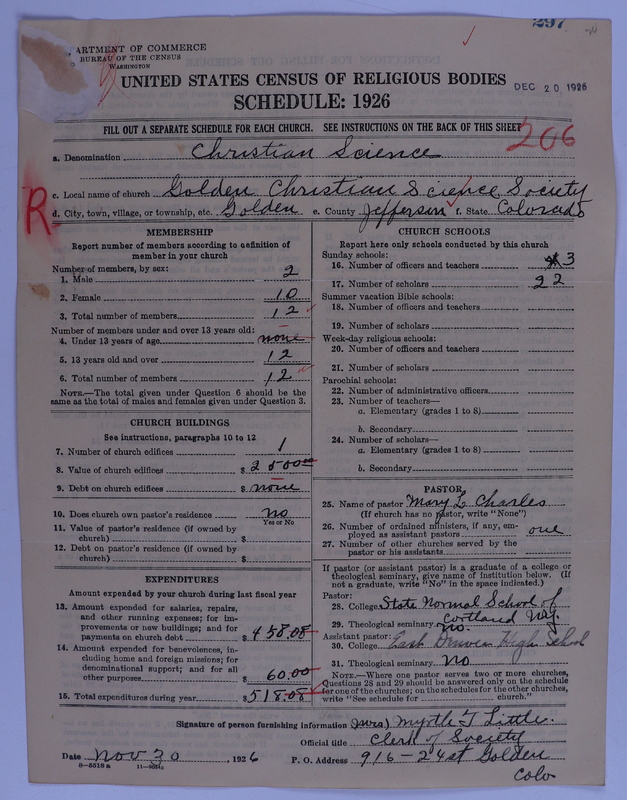 297
DEPARTMENT OF COMMERCE
BUREAU OF THE CENSUS
WASHINGTON
UNITED STATES CENSUS OF RELIGIOUS BODIES
DEC 20 1926
SCHEDULE: 1926
FILL OUT A SEPARATE SCHEDULE FOR EACH CHURCH. SEE INSTRUCTIONS ON THE BACK OF THIS SHEET
206
a. Denomination Christian Science
c. Local name of church Golden Christian Science Society
R
d. City, town, village, or township, etc. Golden e. County Jefferson f. State Colorado
MEMBERSHIP
Report number of members according to definition of
member in your church
Number of members, by sex:
1. Male 2
2. Female 10
3. Total number of members 12
Number of members under and over 13 years old:
4. Under 13 years of age none
5. 13 years old and over 12
6. Total number of members 12
NOTE.—The total given under Question 6 should be
the same as the total of males and females given under Question 3.
CHURCH BUILDINGS
See instructions, paragraphs 10 to 12
7. Number of church edifices 1
8. Value of church edifices $ 2500.00
9. Debt on church edifices $ none
10. Does church own pastor's residence no
Yes or No
11. Value of pastor's residence (if owned by
church) $
12. Debt on pastor's residence (if owned by
church) $
EXPENDITURES
Amount expended by your church during last fiscal year
13. Amount expended for salaries, repairs,
and other running expenses; for im-
provements or new buildings; and for
payments on church debt $ 458.08
14. Amount expended for benevolences, in-
cluding home and foreign missions; for
denominational support; and for all
other purposes 60.00
15. Total expenditures during year $ 518.08
CHURCH SCHOOLS
Report here only schools conducted by this church
Sunday schools:
16. Number of officers and teachers 3
17. Number of scholars 22
Summer vacation Bible schools:
18. Number of officers and teachers
19. Number of scholars
Week-day religious schools:
20. Number of officers and teachers
21. Number of scholars
Parochial schools:
22. Number of administrative officers
23. Number of teachers—
a. Elementary (grades 1 to 8)
b. Secondary
24. Number of scholars—
a. Elementary (grades 1 to 8)
b. Secondary
PASTOR
25. Name of pastor Mary L Charles
(If church has no pastor, write "None")
26. Number of ordained ministers, if any, em-
ployed as assistant pastors one
27. Number of other churches served by the
pastor or his assistants
If pastor (or assistant pastor) is a graduate of a college or
theological seminary, give name of institution below. (If
not a graduate, write "No" in the space indicated.)
Pastor:
28. College State Normal School of
Cortland N.Y.
29. Theological seminary no
Assistant pastor:
30. College East Denver High School
31. Theological seminary No
NOTE.—Where one pastor serves two or more churches,
Questions 28 and 29 should be answered only on the schedule
for one of the churches; on the schedules for the other churches,
write "See schedule for church."
Signature of person furnishing information (Mrs) Myrtle T Little.
Official title Clerk of Society
Date Nov 30, 1926 P. O. Address 916-24st Golden
Colo
8-5518 a